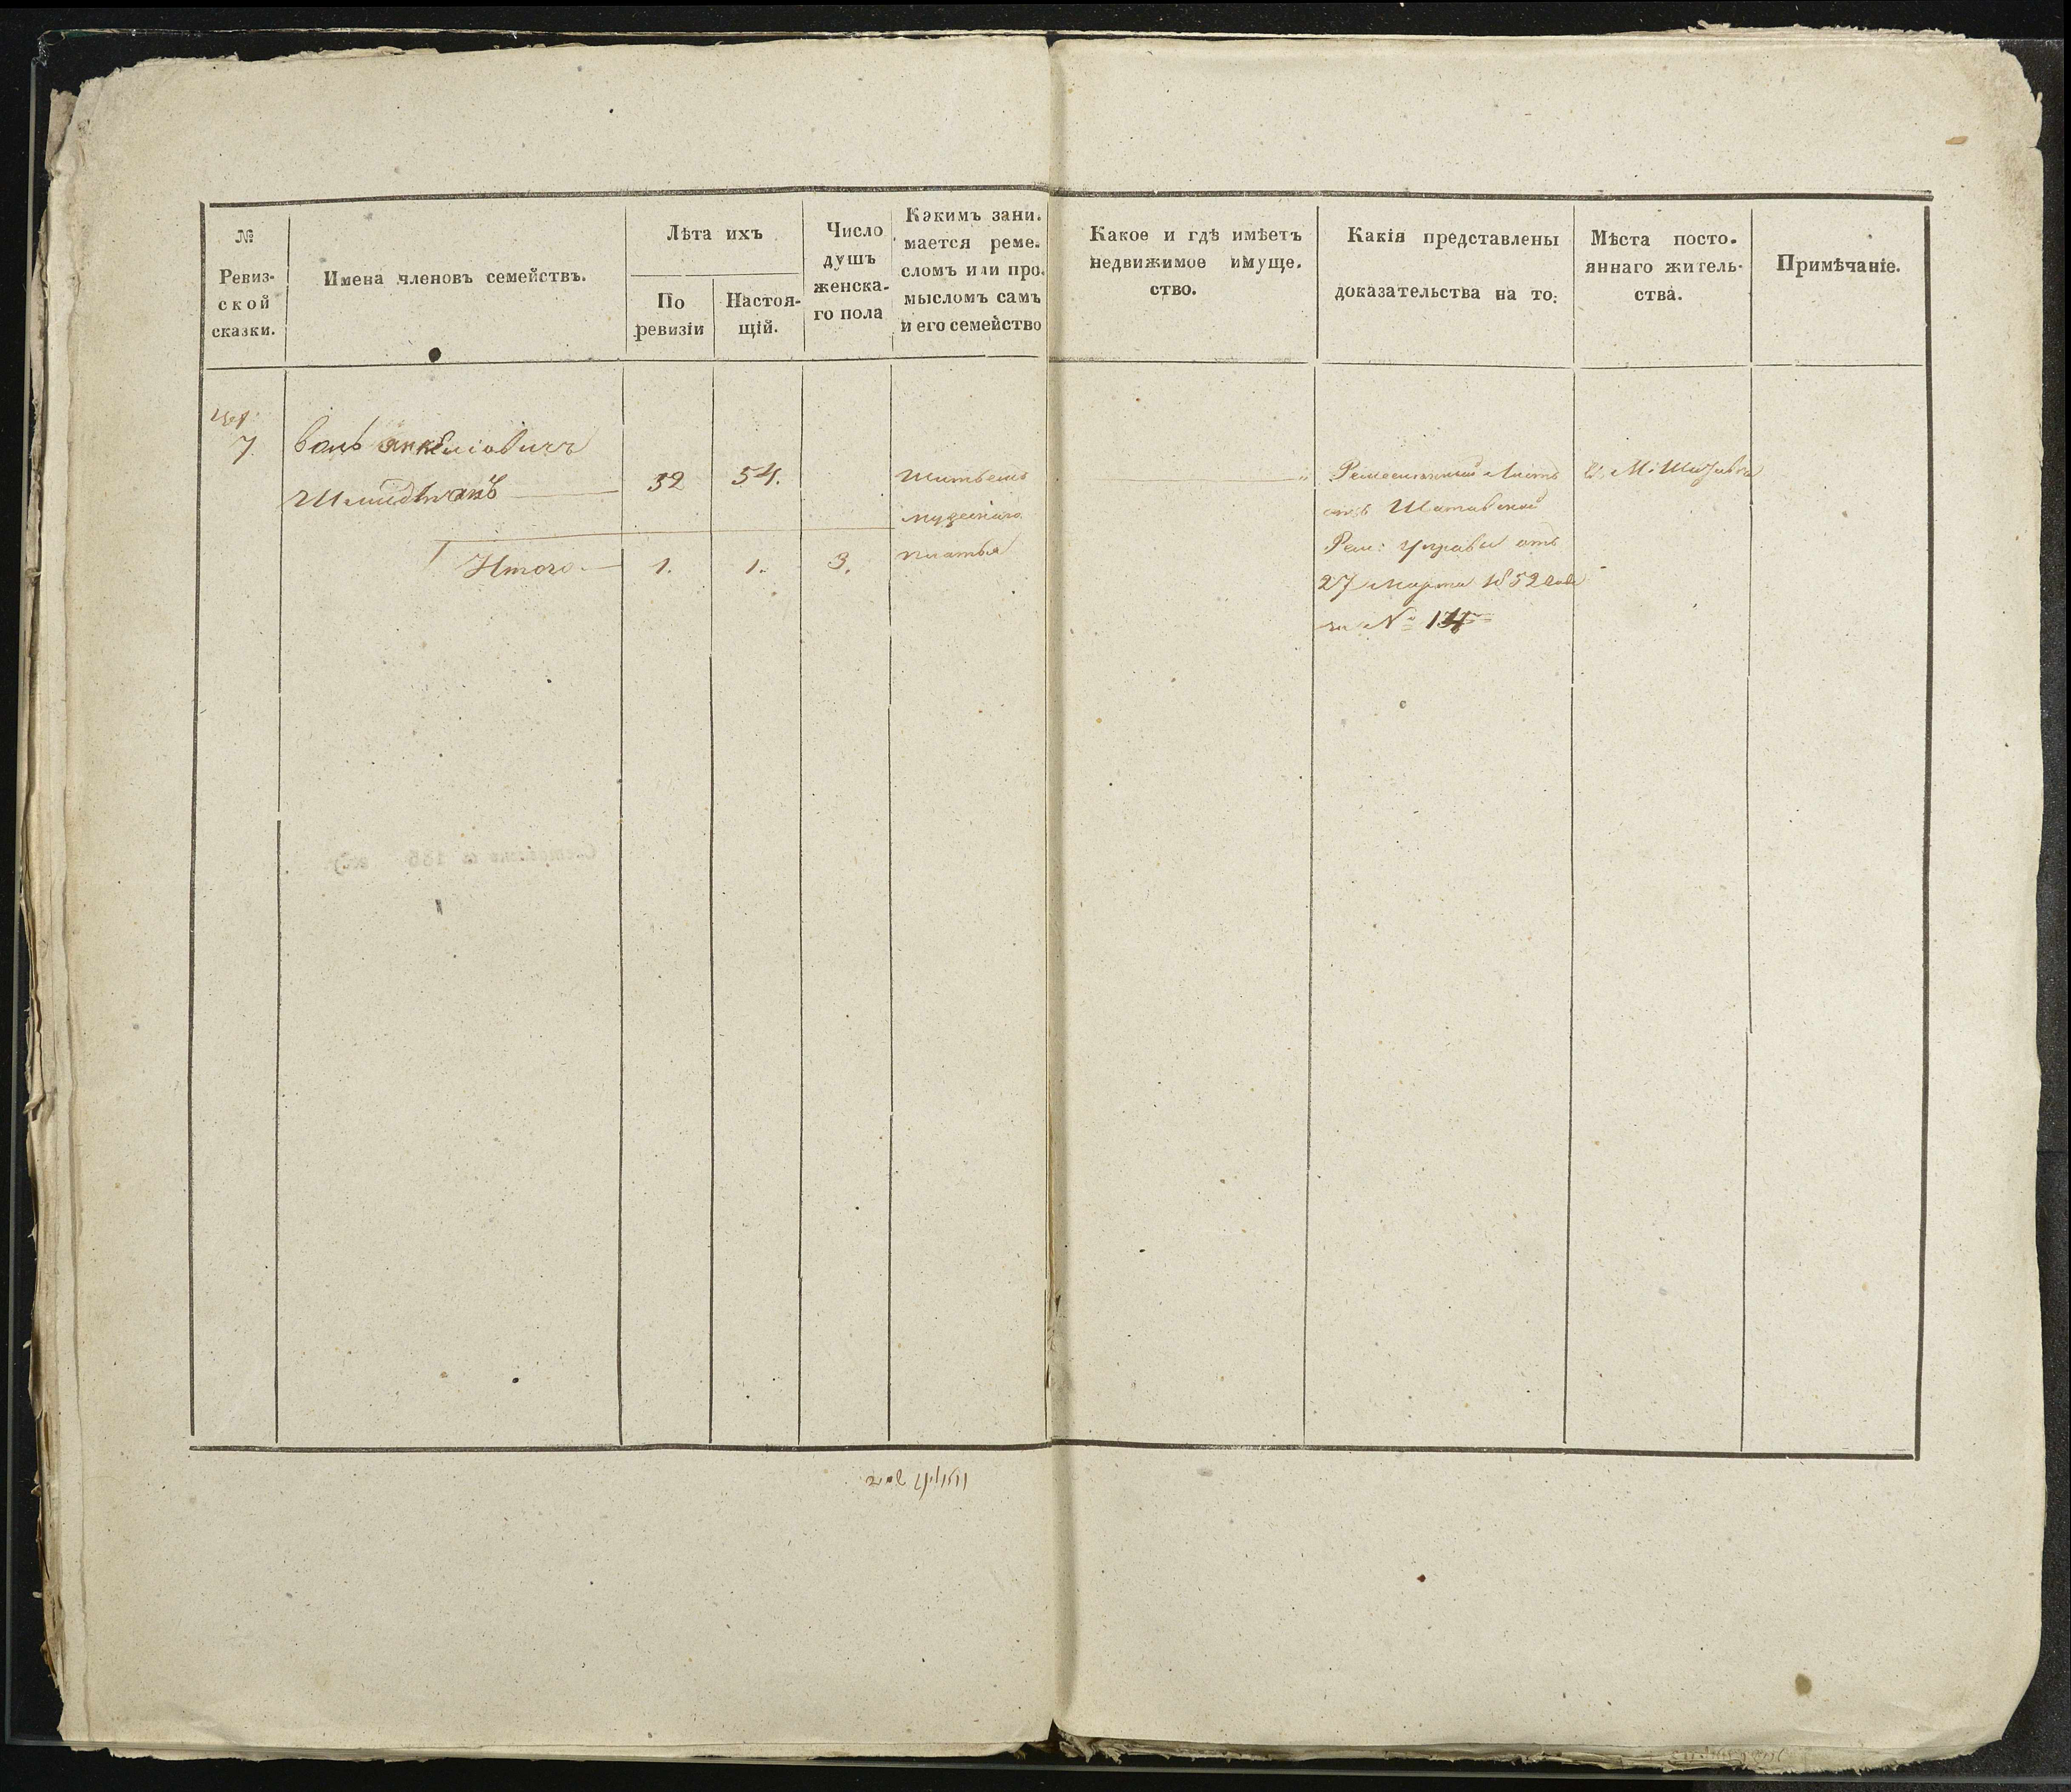 №
Ревиз-
ской
сказки.
Имена членовъ семействъ.
Лѣта ихъ
По
ревизіи
Настоя-
щій.
Число
душъ
женска-
го пола
Какимъ зани-
мается реме-
сломъ или про-
мысломъ самъ
и его семейство
Какое и гдѣ имѣетъ
недвижимое имуще-
ство.
Какія представлены
доказательства на то:
Мѣста посто-
яннаго житель-
ства.
Примѣчаніе.
7.
32
54.
Шитьемъ
мужескаго
платья
Итого
1.
1.
3.
Ремесленный Листъ
отъ
Рем: Управы отъ
27 Марта 1852 года
за №